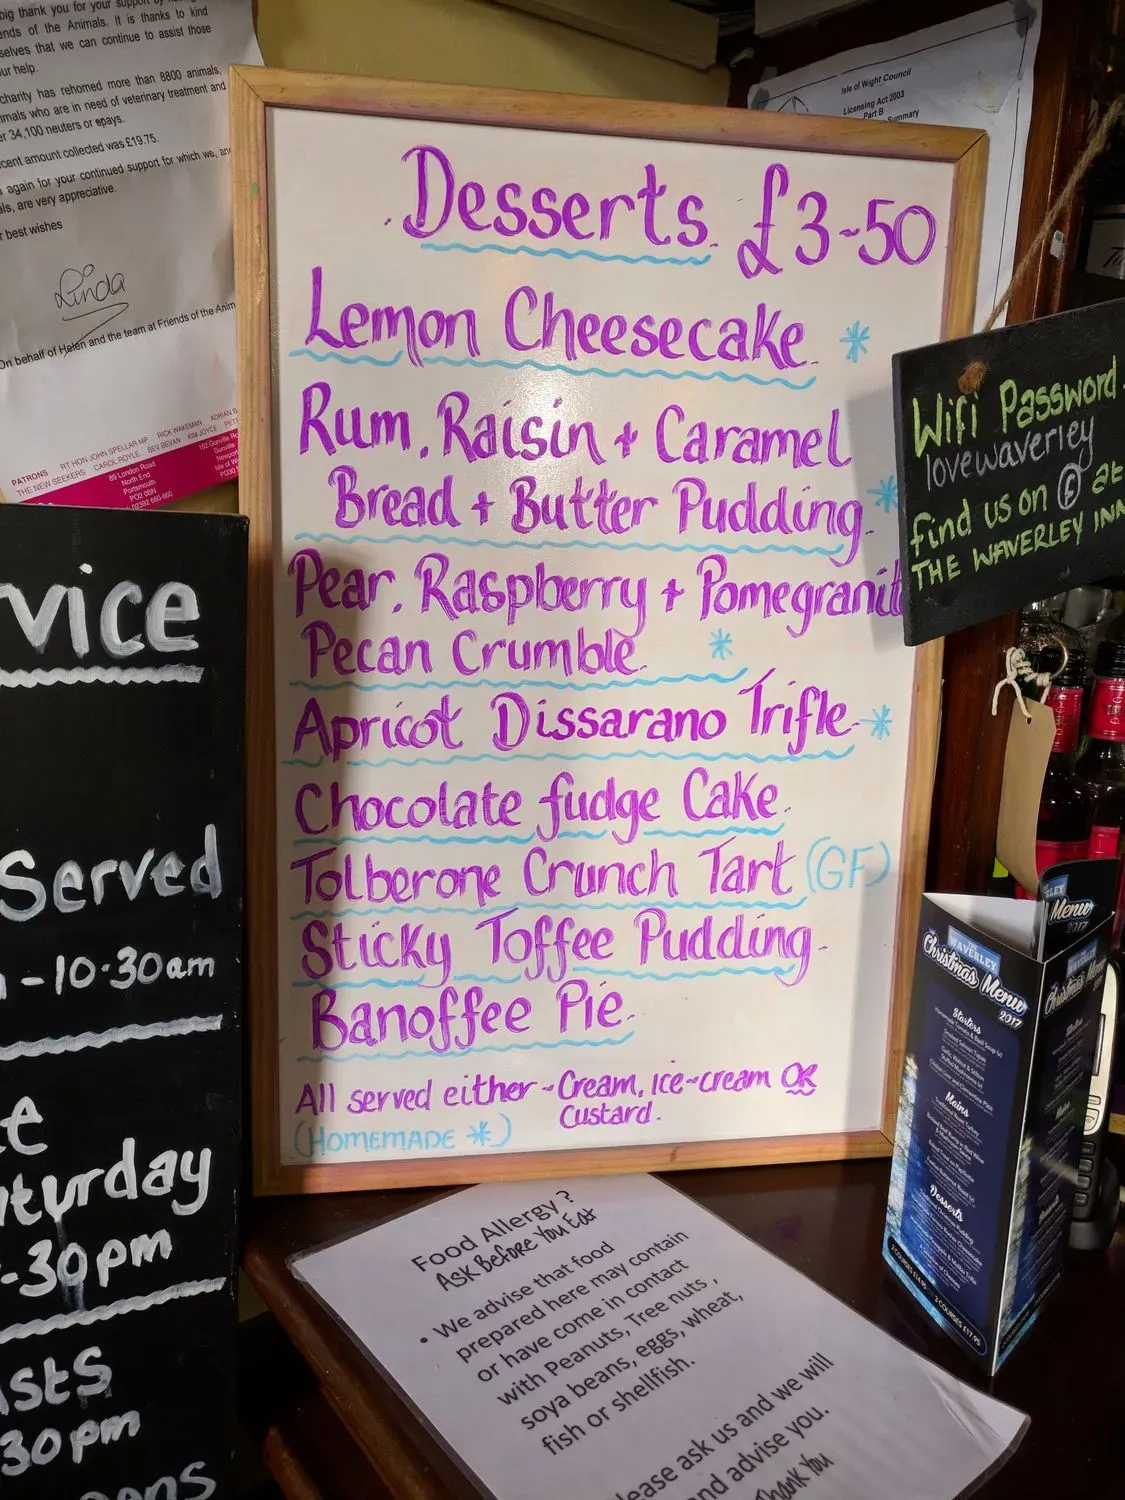 big thank you for your support by
ends of the Animals. It is thanks to kind
selves that we can continue to assist those
ur help.
charity has rehomed more than 8800 animals,
imals who are in need of veterinary treatment and
er 34,100 neuters or spays.
cent amount collected was £19.75.
again for your continued support for which we, and
als, are very appreciative.
r best wishes
Linda
On behalf of Helen and the team at Friends of the Anim
PATRONS RT HON JOHN SPELLAR MP RICK WAKEMAN ADRIAN B
THE NEW SEEKERS CAROL ROYLE BEV BEVAN KIM JOYCE PETE
89 London Road
North End
Portsmouth
PO2 0BN
02392 660 660
Isle of Wight Council
Licensing Act 2003
Part B
Summary
Desserts £3-50
Lemon Cheesecake *
Rum, Raisin + Caramel
Bread + Butter Pudding. *
Pear, Raspberry + Pomegranit
Pecan Crumble *
Apricot Dissarano Trifle *
Chocolate fudge Cake
Tolberone Crunch Tart (GF)
Sticky Toffee Pudding
Banoffee Pie
All served either - Cream, ice-cream OR
Custard.
(HOMEMADE *)
Wifi Password
lovewaverley
find us on f at
THE WAVERLEY INN
vice
Served
-10·30am
turday
-30pm
sts
30pm
ons
WAVERLEY
Christmas Menu
2017
Starters
Mains
Desserts
2 COURSES £14.95 3 COURSES £17.95
Menu
2017
Food Allergy?
Ask Before You Eat
• We advise that food
prepared here may contain
or have come in contact
with Peanuts, Tree nuts,
soya beans, eggs, wheat,
fish or shellfish.
lease ask us and we will
nd advise you.
Thank You